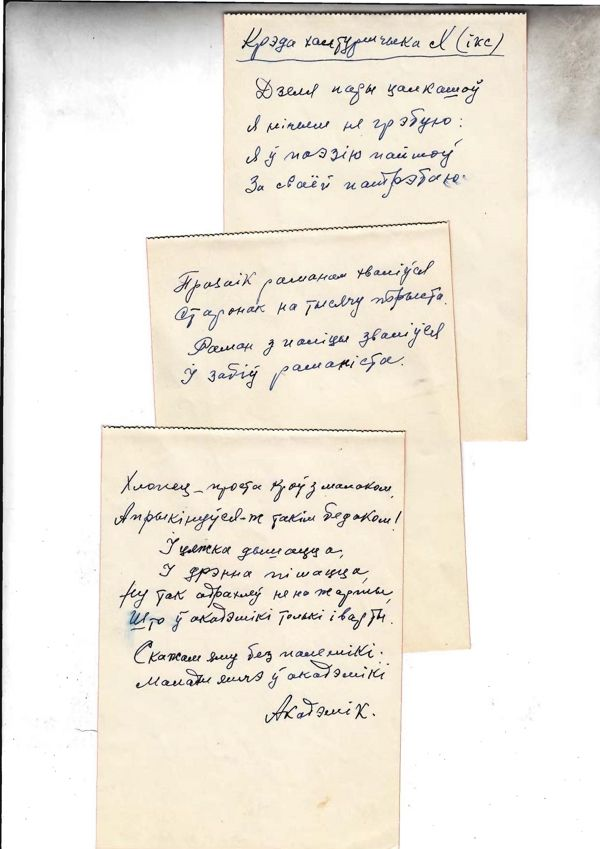 Крэда халтуршчыка X (ікс)
Дзеля пары цалкашоў
Я нічым не грэбую:
Я ў паэзію пайшоў
За сваёй патрэбаю.
Празаік раманам хваліўся
Старонак на тысячу трыста.
Раман з паліцы зваліўся
І забіў раманіста.
Хлопец – проста кроў з малаком,
А прыкінуўся-ж такім бедаком!
І цяжка дышацца,
І дрэнна пішацца,
Ну так адрахлеў не на жарты,
Што ў акадэмікі толькі і варты.
Скажам яму без палемікі:
Малады яшчэ ў акадэмікі
Акадэмік.